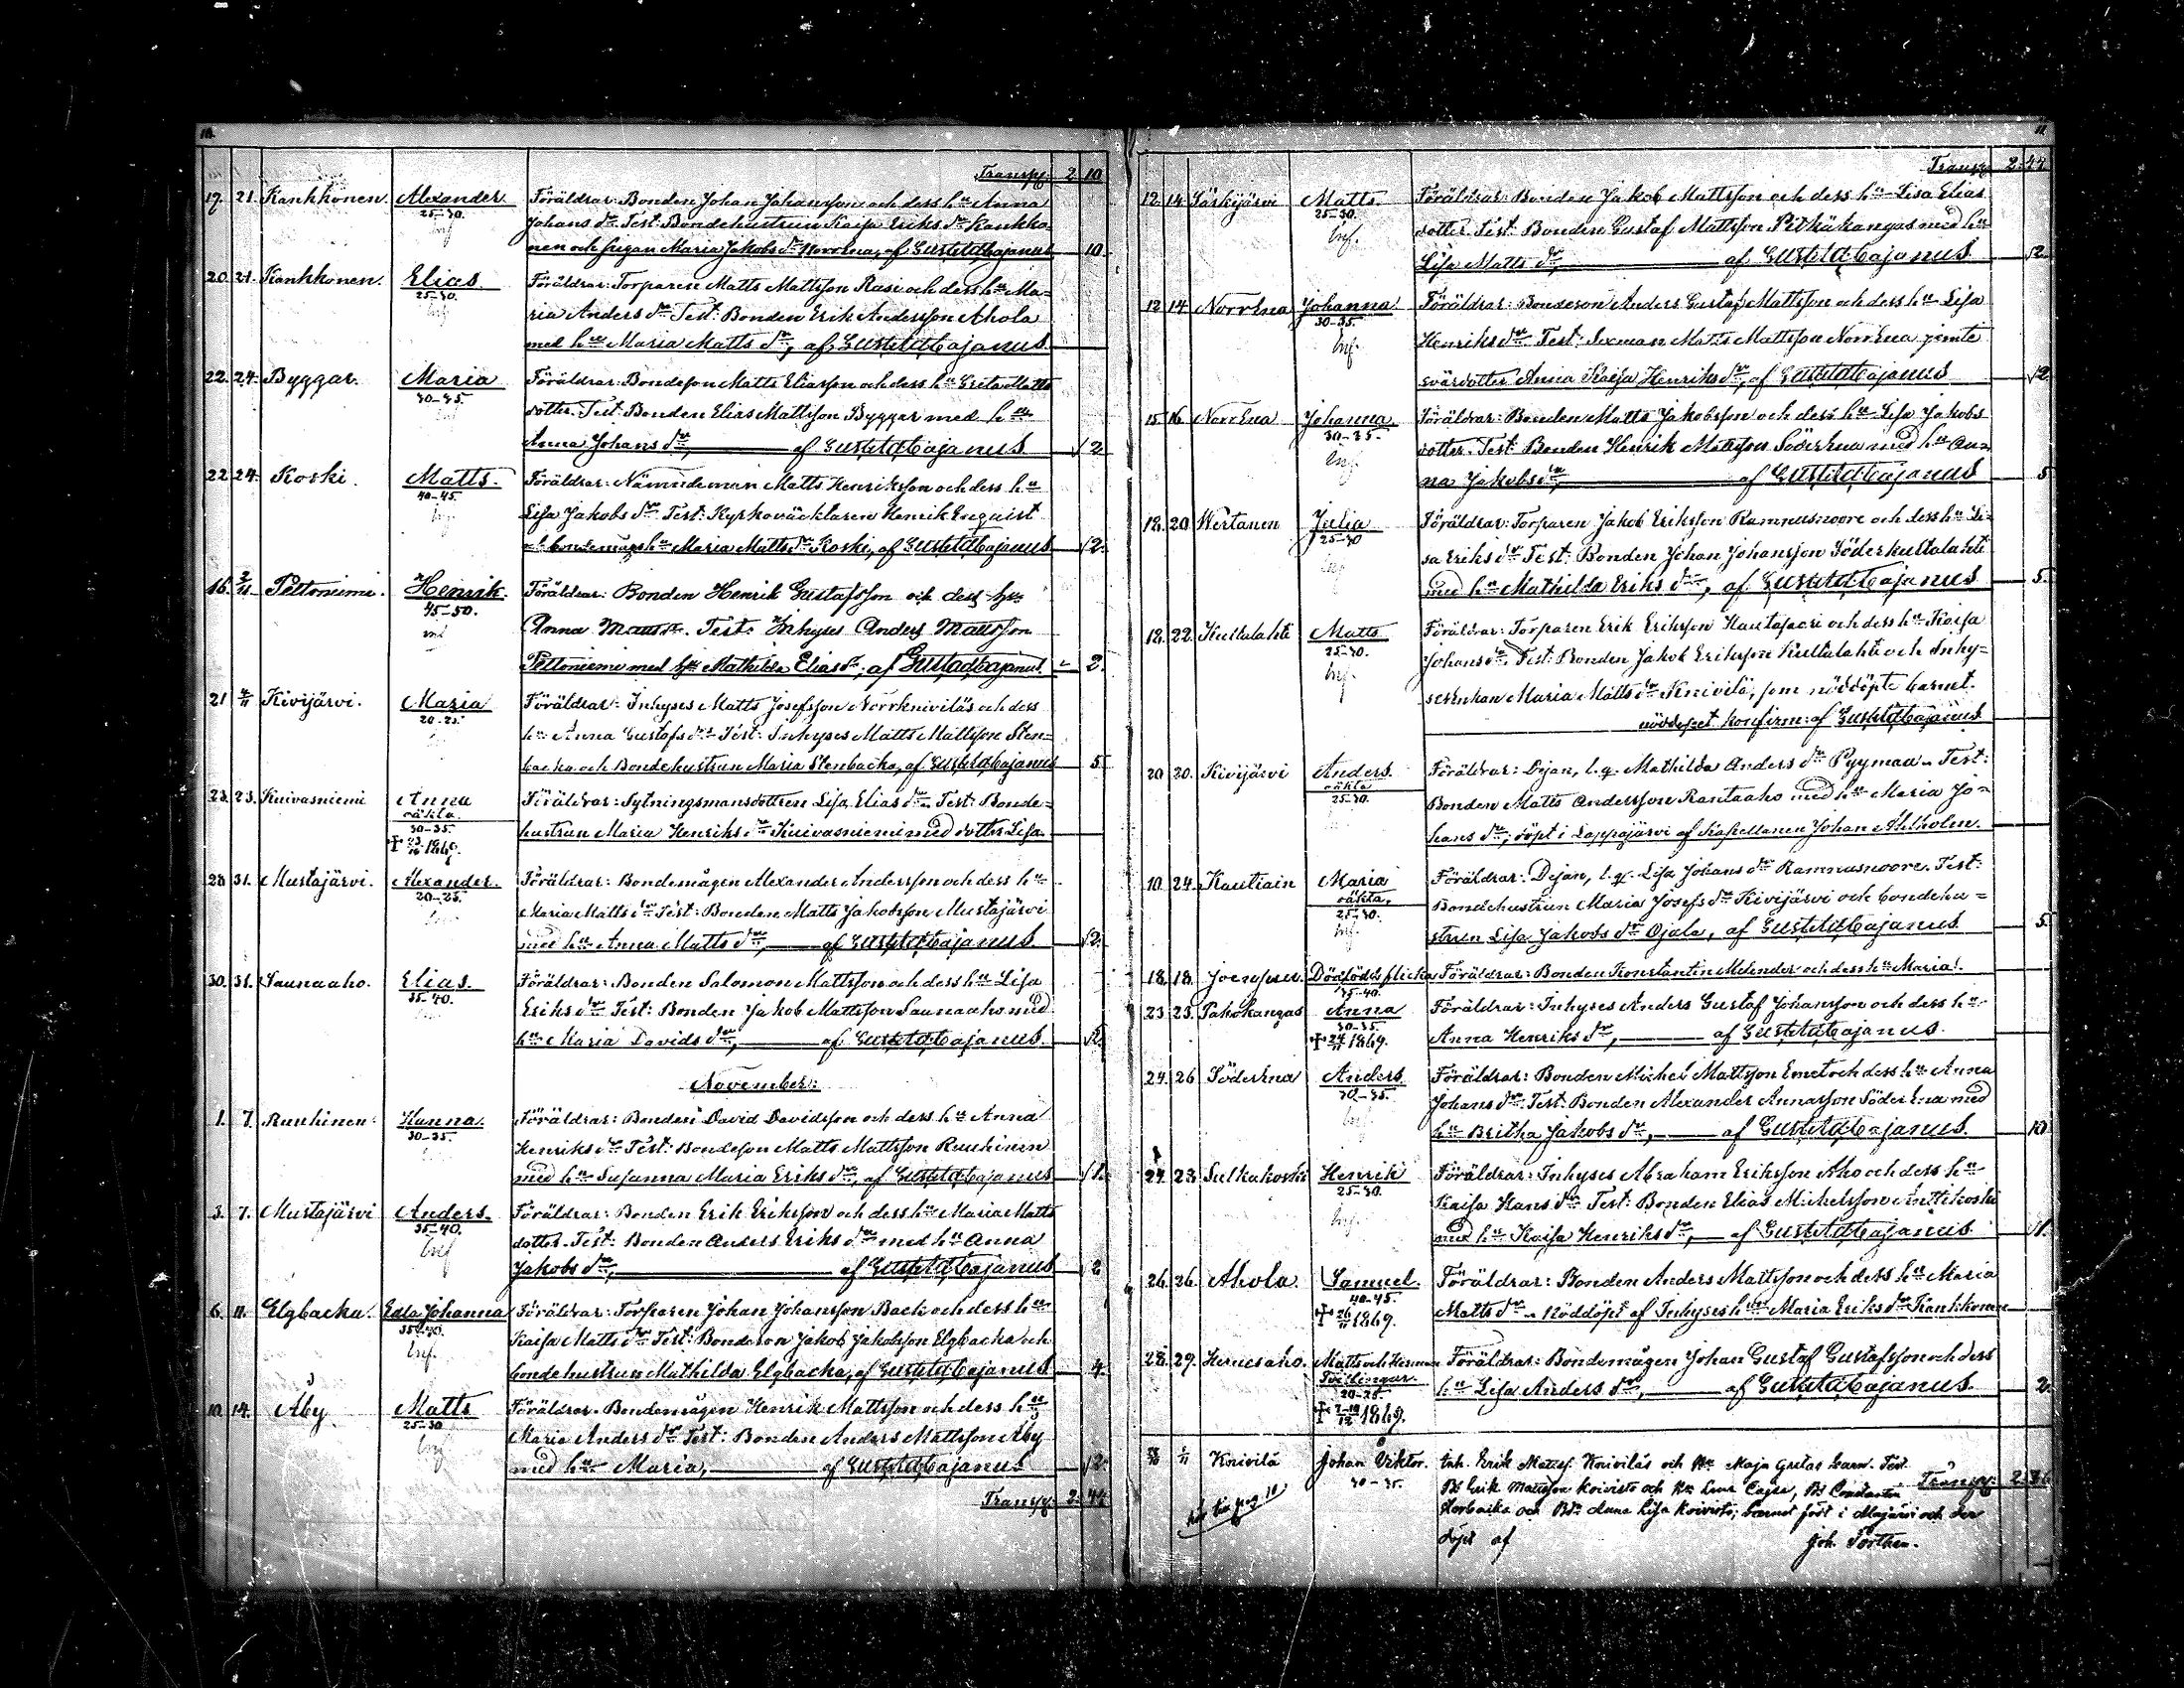 10.
Transp. 2 10
17. 21. Kankkonen. Alexander. Föräldrar: Bonden Johan Johansson och dess hu Anna
25-30. Johans dr Test: Bondehustrun Kaisa Eriks dr Kankko-
nen och pigan Maria Jakobs dr NorrEna, af Gust. Ad. Cajanus 10
20. 21. Kankkonen. Elias. Föräldrar: Torparen Matts Mattsson Rasi och dess hu Ma=
25-30. ria Anders dr Test: Bonden Erik Andersson Ahola
med hu Maria Matts dr, af Gust. Ad. Cajanus.
22. 24. Byggar. Maria Föräldrar: Bondeson Matts Eliasson och dess hu Greta Matts
30-35. dotter. Test: Bonden Elias Mattsson Byggar med hu
Anna Johans dr, af Gust. Ad. Cajanus 2
22. 24. Koski. Matts. Föräldrar: Nämndeman Matts Henriksson och dess hu
40-45. Lisa Jakobs dr Test: Kyrkoväktaren Henrik Enquist
och bondemågs hu Maria Matts dr Koski, af Gust. Ad. Cajanus 2.
16. 2/11 Peltoniemi. Henrik. Föräldrar: Bonden Henrik Gustafsson och dess hu
45-50. Anna Matts dr. Test: Inhyses Anders Mattsson
Peltoniemi med hu Mathilda Elias dr, af Gust. Ad. Cajanus. 2.
21 4/11 Kivijärvi. Maria Föräldrar: Inhyses Matts Josefsson Norrknivilä och dess
20-25. hu Anna Gustafs dr Test: Inhyses Matts Mattsson Sten-
backa och Bondehustrun Maria Stenbacka, af Gust. Ad. Cajanus 5
23. 23. Kuivasniemi Anna Föräldrar: Sytningsmansdottren Lisa Elias dr. Test: Bonde=
oäkta.
30-35. hustrun Maria Henriks dr Kuivasniemi med dotter Lisa.
1869.
28 31. Mustajärvi. Alexander. Föräldrar: Bondemågen Alexander Andersson och dess hu
20-25. Maria Matts dr Test: Bonden Matts Jakobsson Mustajärvi
med hu Anna Matts dr, af Gust. Ad. Cajanus 2.
30. 31. Saunaaho. Elias. Föräldrar: Bonden Salomon Mattsson och dess hu Lisa
35-40. Eriks dr Test: Bonden Jakob Mattsson Saunaaho med
hu Maria Davids dr, af Gust. Ad. Cajanus. 2.
November:
1. 7. Ruuhinen. Hanna. Föräldrar: Bonden David Davidsson och dess hu Anna
30-35. Henriks dr Test: Bondeson Matts Mattsson Ruuhinen
med hu Susanna Maria Eriks dr, af Gust. Ad. Cajanus 1.
3. 7. Mustajärvi Anders. Föräldrar: Bonden Erik Eriksson och dess hu Maria Matts
35-40. dotter. Test: Bonden Anders Eriks dr med hu Anna
Jakobs dr, af Gust. Ad. Cajanus 2
6. 11. Elgbacka. Edla Johanna Föräldrar: Torparen Johan Johansson Back och dess hu
35-40. Kaisa Matts dr Test: Bondeson Jakob Jakobsson Elgbacka och
bondehustrun Mathilda Elgbacka, af Gust. Ad. Cajanus 4.
10. 14. Åby Matts Föräldrar. Bondemågen Henrik Mattsson och dess hu
25-30 Maria Anders dr Test: Bonden Anders Mattsson Åby
med hu Maria, af Gust. Ad. Cajanus 2.
Transp. 2. 44
11
Transp 2. 44.
12 14 Särkijärvi Matts. Föräldrar: Bonden Jakob Mattsson och dess hu Lisa Elias
25-30. dotter. Test: Bonden Gustaf Mattsson Pitkäkangas med hu
Lisa Matts dr, af Gust. Ad. Cajanus 2.
12 14 NorrEna Johanna Föräldrar: Bondeson Anders Gustaf Mattsson och dess hu Lisa
30-35. Henriks dr Test: Sexman Matts Mattsson NorrEna jemte
svärdotter Anna Kaisa Henriks dr, af Gust. Ad. Cajanus 2
15 16. NorrEna Johanna. Föräldrar: Bonden Matts Jakobsson och dess hu Lisa Jakobs
30-35. dotter. Test: Bonden Henrik Mattsson SöderEna med hu An-
na Jakobs dr, af Gust. Ad. Cajanus 5
18. 20 Wertanen Julia Föräldrar: Torparen Jakob Eriksson Ramnusmoore och dess hu Li-
25-30 sa Eriks dr Test: Bonden Johan Johansson Söderkultalahti
med hu Mathilda Eriks dr, af Gust. Ad. Cajanus 5.
18. 22. Kultalahti Matts. Föräldrar: Torparen Erik Eriksson Hautasaari och dess hu Kaisa
25-30. Johans dr Test: Bonden Jakob Eriksson Kultalahti och Inhy=
seskhan Maria Matts dr Knivilä, som nöddöpte barnet.
nöddopet konfirm: af Gust. Ad. Cajanus
20 20. Kivijärvi Anders. Föräldrar: Dejan, l.q. Mathilda Anders dr Pyymaa. Test:
oäkta
25-30. Bonden Matts Andersson Rantaaho med hu Maria Jo=
hans dr, döpt i Lappajärvi af Kapellanen Johan Ahlholm.
10. 24. Kautiain Maria Föräldrar: Dejan, l.q. Lisa Johans dr Ramnusmoore. Test:
oäkta.
25-30. Bondehustrun Maria Josefs dr Kivijärvi och bondehu=
strun Lisa Jakobs dr Ojala, af Gust. Ad. Cajanus 5.
18. 18. Joenpuu. Dödfödd flicka Föräldrar: Bonden Konstantin Melender och dess hu Maria.
35-40.
23 25. Pahkakangas Anna Föräldrar: Inhyses Anders Gustaf Johansson och dess hu
30-35.
1869. Anna Henriks dr, af Gust. Ad. Cajanus.
24. 26 SöderEna Anders Föräldrar: Bonden Michel Mattsson Emet och dess hu Anna
30-35. Johans dr Test: Bonden Alexander Annasson SöderEna med
hu Britha Jakobs dr, af Gust. Ad. Cajanus. 10
24. 28 Sulkakoski Henrik Föräldrar: Inhyses Abraham Eriksson Aho och dess hu
25-30. Kaisa Hans dr Test: Bonden Elias Michelsson Anttikoski
med hu Kaisa Henriks dr, af Gust. Ad. Cajanus 1.
26. 26. Ahola. Samuel. Föräldrar: Bonden Anders Mattsson och dess hu Maria
40-45.
1869. Matts dr. Nöddöpt af Inhyses hu Maria Eriks dr Kankkonen
28. 29. Hernesaho. Matts och Herman Föräldrar: Bondemågen Johan Gustaf Gustafsson och dess
Tvillingar.
20-25. hu Lisa Anders dr, af Gust. Ad. Cajanus. 2.
1869.
Knivilä Johan Viktor. Inh. Erik Matts. Knivilä och Hu Maja Greta barn. Test.
30-35. Bd Erik Mattsson Koivisto och Hu Lena Cajsa, Bd Constantin Transp. 2. 86
Storbacka och Bdr Anna Lisa Koivisto; barnet född i Alajärvi och der
döpt af Joh. Forthen.